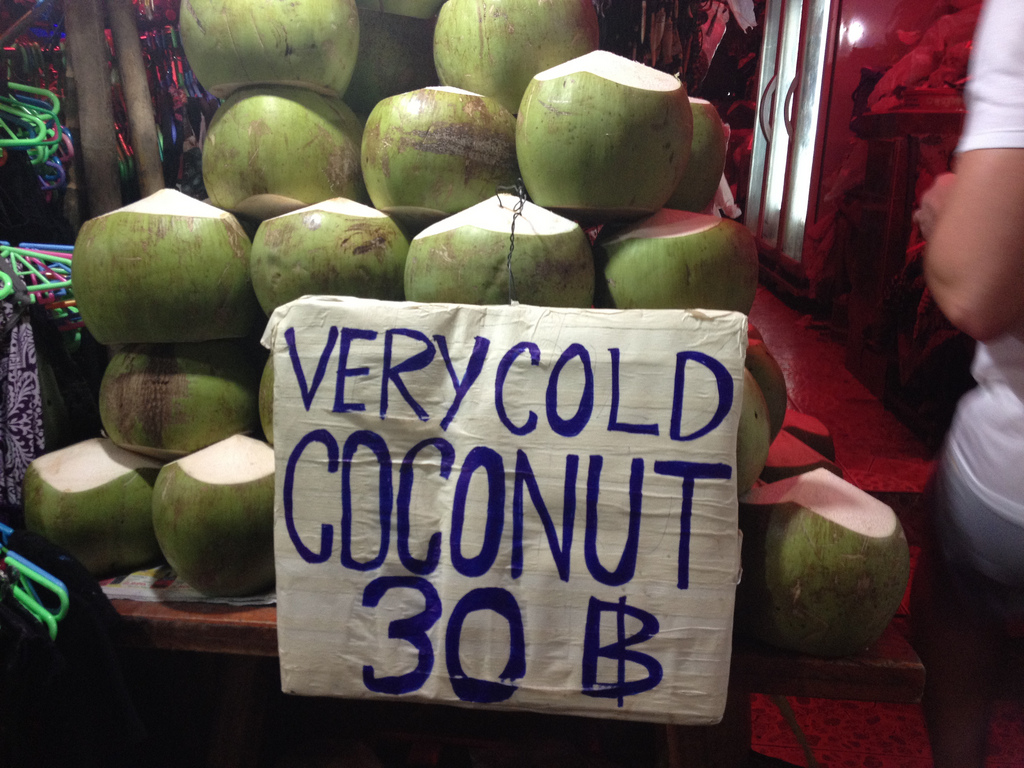 VERY COLD
COCONUT
30 ฿